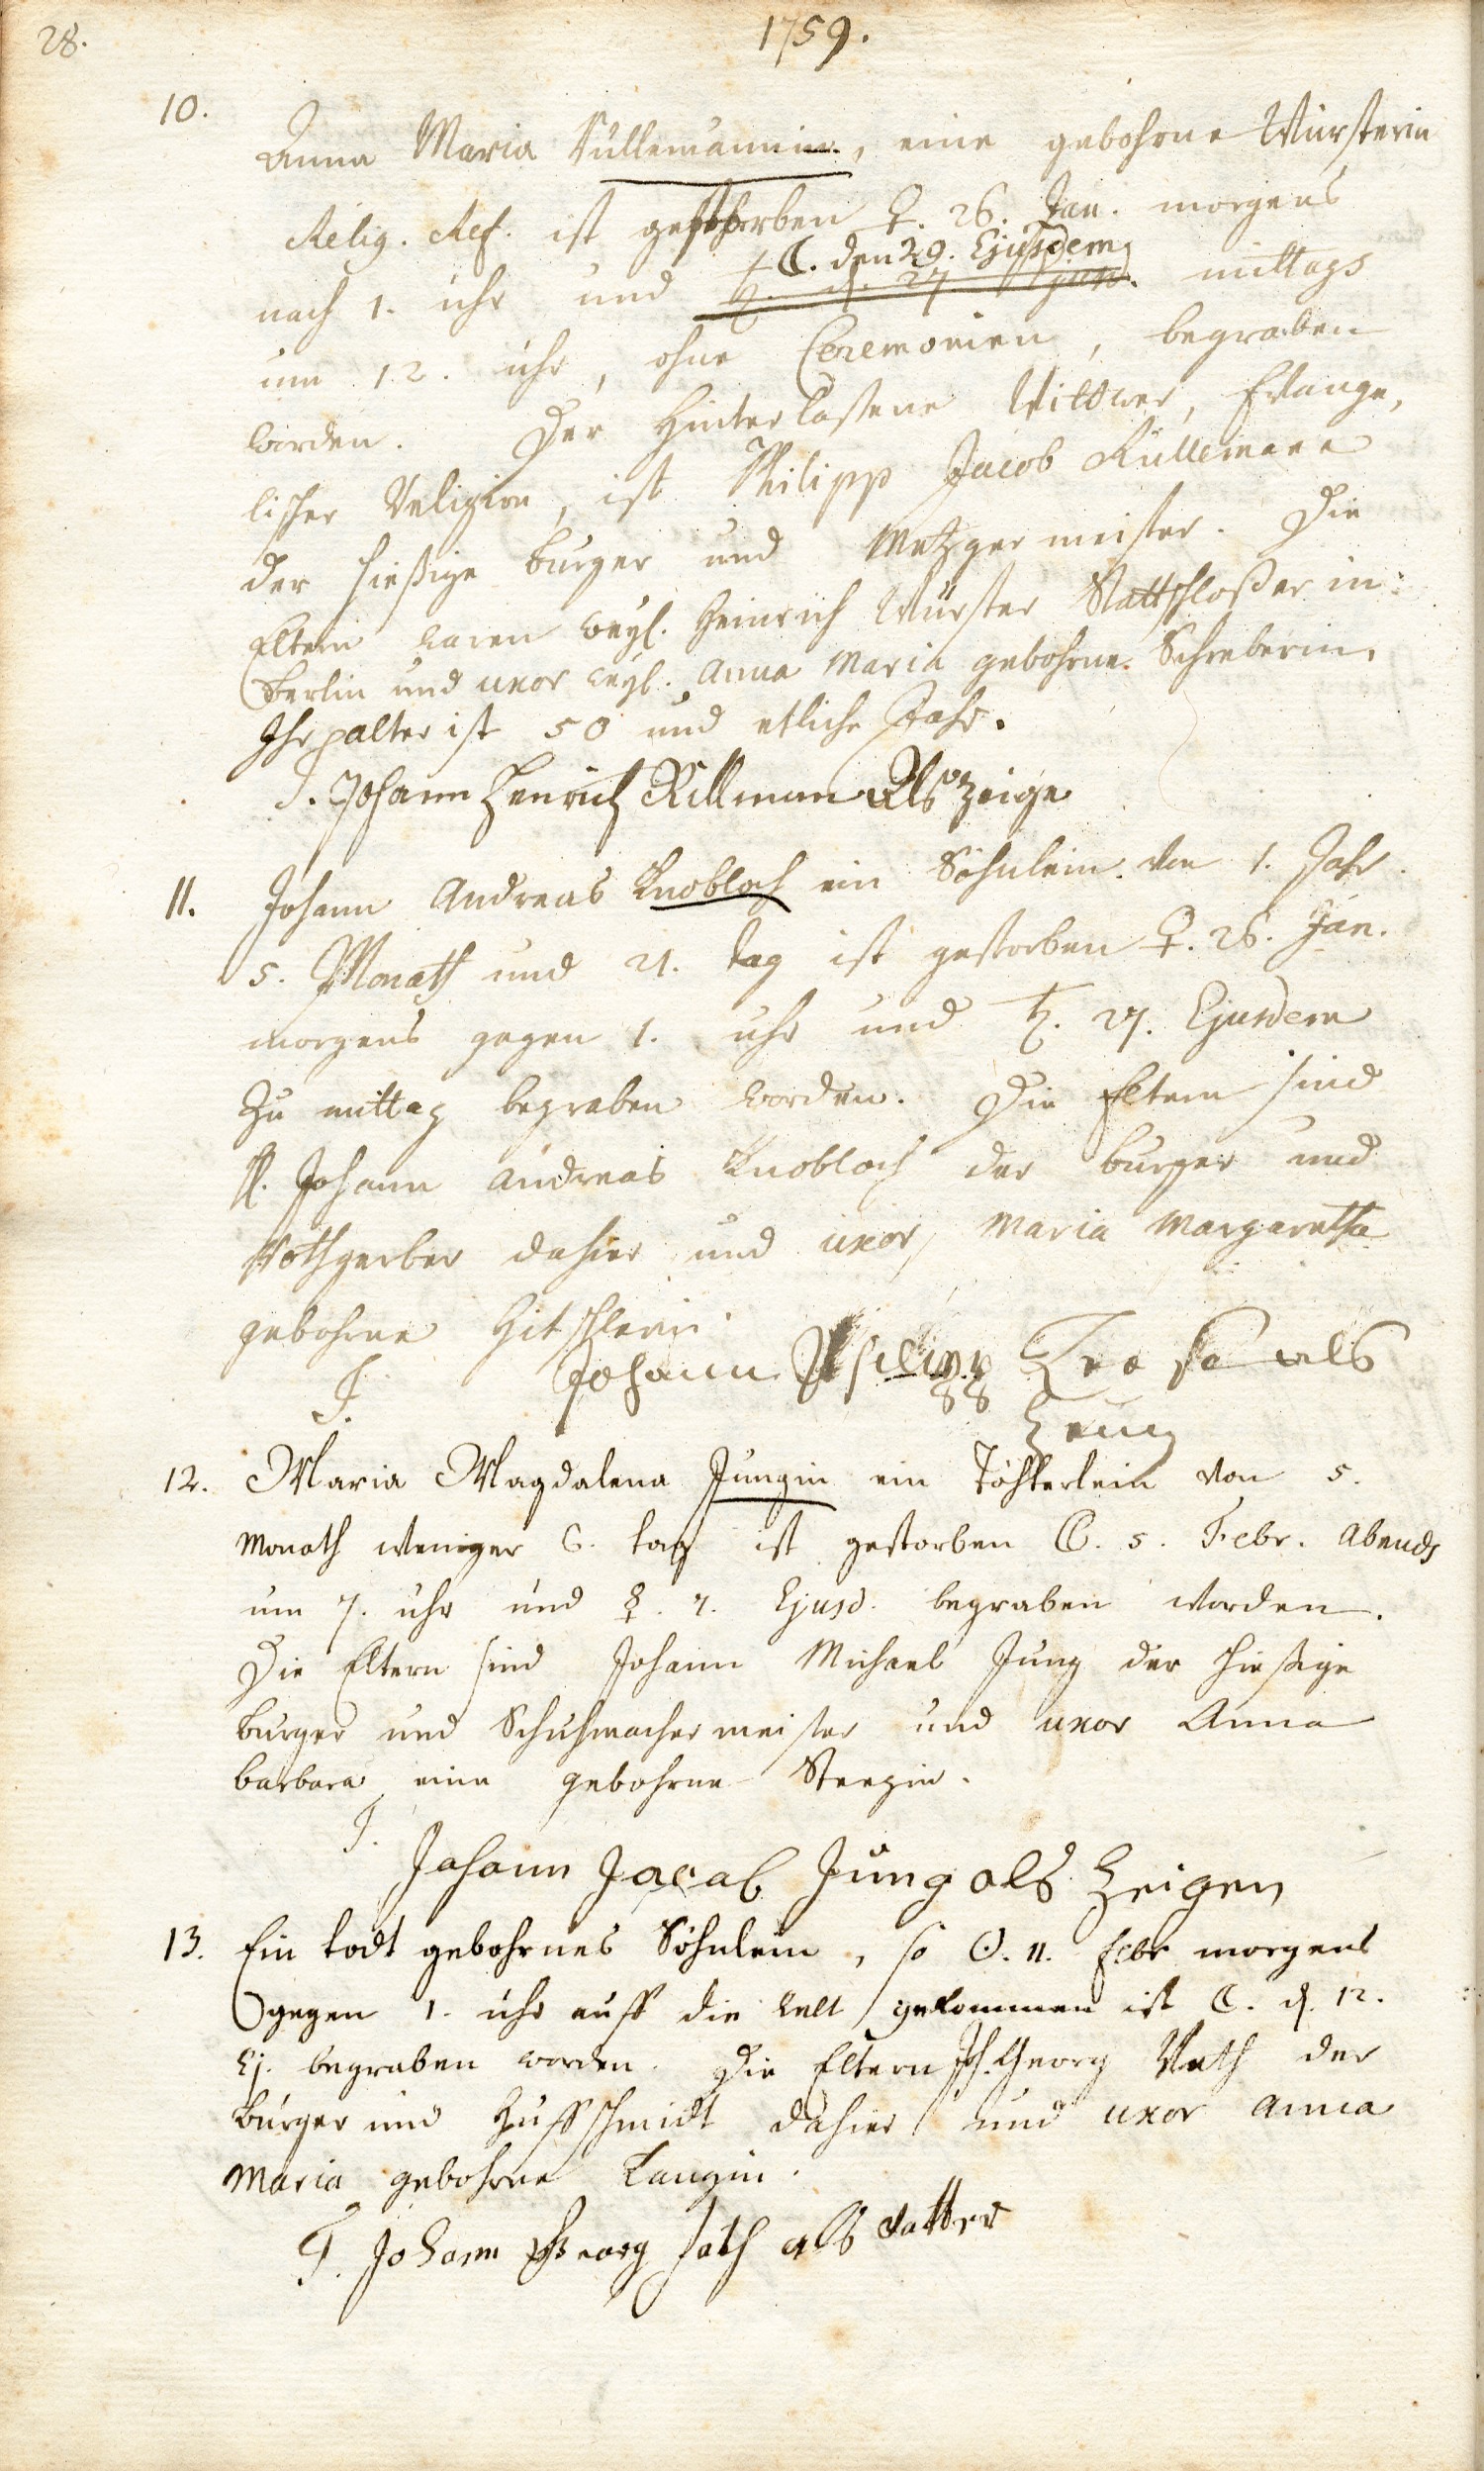 28.
1759.
10.
Anna Maria Rüllemannin, eine gebohrne Würsterin
Relig. Ref. ist gestorben ♀. 26. Jan. morgens
☾. den 29. Ejusdem
nach 1. uhr und ♄. d. 27 Jan. mittags
um 12. uhr, ohne Ceremonien, begraben
worden. Der Hinterlaßene Wittwer, Evange,
lischer Religion, ist Philipp Jacob Rüllemann
der hießige burger und Metzgermeister. Die
Eltern waren weyl. Heinrich Würster Stattschloßer in
Berlin und uxor weyl. Anna Maria gebohrne Schreberin.
Ihr alter ist 50 und etliche Jahr.
T. Johann Henrich Rillman Als Zeige
11. Johann Andreas Knobloch ein Söhnlein von 1. Jahr
5. Monath und 21. tag ist gestorben ♀. 26. Jan.
morgens gegen 1. uhr und ♄. 27. Ejusdem
zu mittag begraben worden. Die Eltern sind
H. Johann Andreas Knobloch der burger und
Rothgerber dahier und uxor, Maria Margaretha
gebohrne Hitschlerin.
T. Johann als
Zeug
12. Maria Magdalena Jungin ein Töchterlein von 5.
Monath weniger 6. tag ist gestorben ☾. 5. Febr. Abends
um 7. uhr und ☿. 7. Ejusd. begraben worden.
Die Eltern sind Johann Michael Jung der hießige
burger und Schuhmachermeister und uxor Anna
barbara eine gebohrne Steegin.
T.
Johann Jacob Jung als Zeigen
13. Ein todt gebohrnes Söhnlein, so ☉. 11. Febr morgens
gegen 1. uhr auff die welt gekommen ist ☾. d. 12.
Ej. begraben worden. Die Eltern Joh. Georg Rath der
burger und Huffschmidt dahier und uxor Anna
Maria gebohrne Langin.
T. Johann Georg rath als vatter